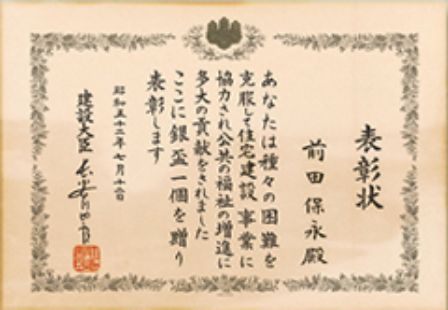 表彰状
前田保永殿
あなたは種々の困難を
克服して住宅建設事業に
協力され公共の福祉の増進に
多大の貢献をされました
ここに銀盃一個を贈り
表彰します
昭和五十二年七月十二日
建設大臣